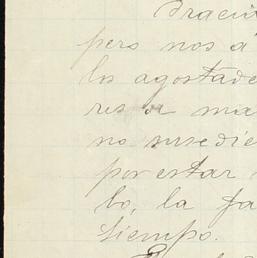 Dracu
pero nos a
los agostade
res a ma
no susedie
por estar
bo, la fa
tiempo.